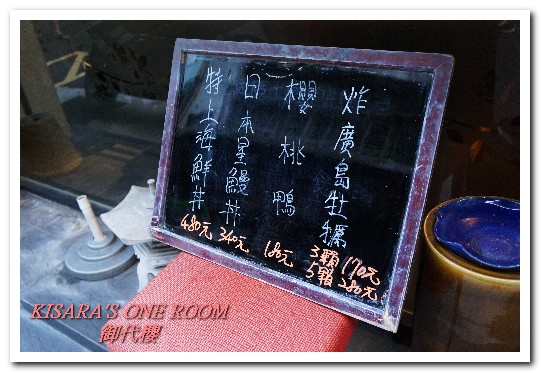 炸廣島牡犡
3顆170元
5顆280元
櫻桃鴨
180元
日本星鰻丼
340元
特上海鮮丼
480元
KISARA'S ONE ROOM
御代櫻